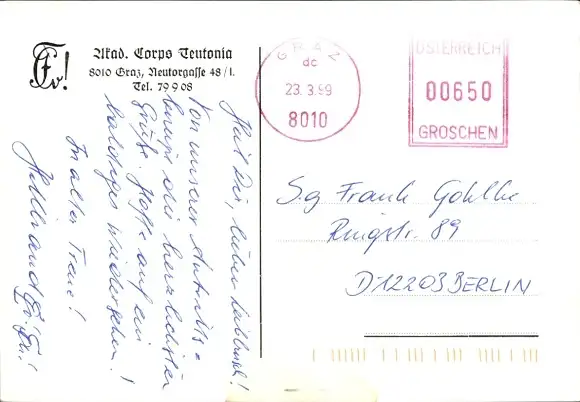 Akad. Corps Teutonia
8010 Graz, Neutorgasse 48/I.
Tel. 79 9 08
Hab Dir, lieber
Von unserer Antritts=
kneipe die herzlichsten
Grüße. Hoffe auf ein
baldiges Wiedersehen!
In alter Treue!
Hillbrand
GRAZ
dc
23. 3. 99
8010
ÖSTERREICH
00650
GROSCHEN
S.g Frank Gohlke
Ringstr. 89
D 12203 BERLIN